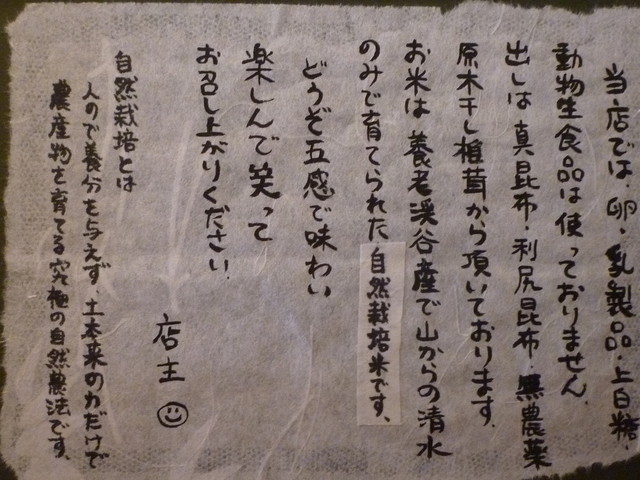 当店では、卵・乳製品・上白糖、
動物生食品は使っておりません。
出しは真昆布・利尻昆布・無農薬
原木干し椎茸から頂いております。
お米は養老渓谷産で山からの清水
のみで育てられた自然栽培米です。
どうぞ五感で味わい
楽しんで笑って
お召し上がりください。
店主
自然栽培とは
人の手で養分を与えず、土本来の力だけで
農産物を育てる究極の自然農法です。